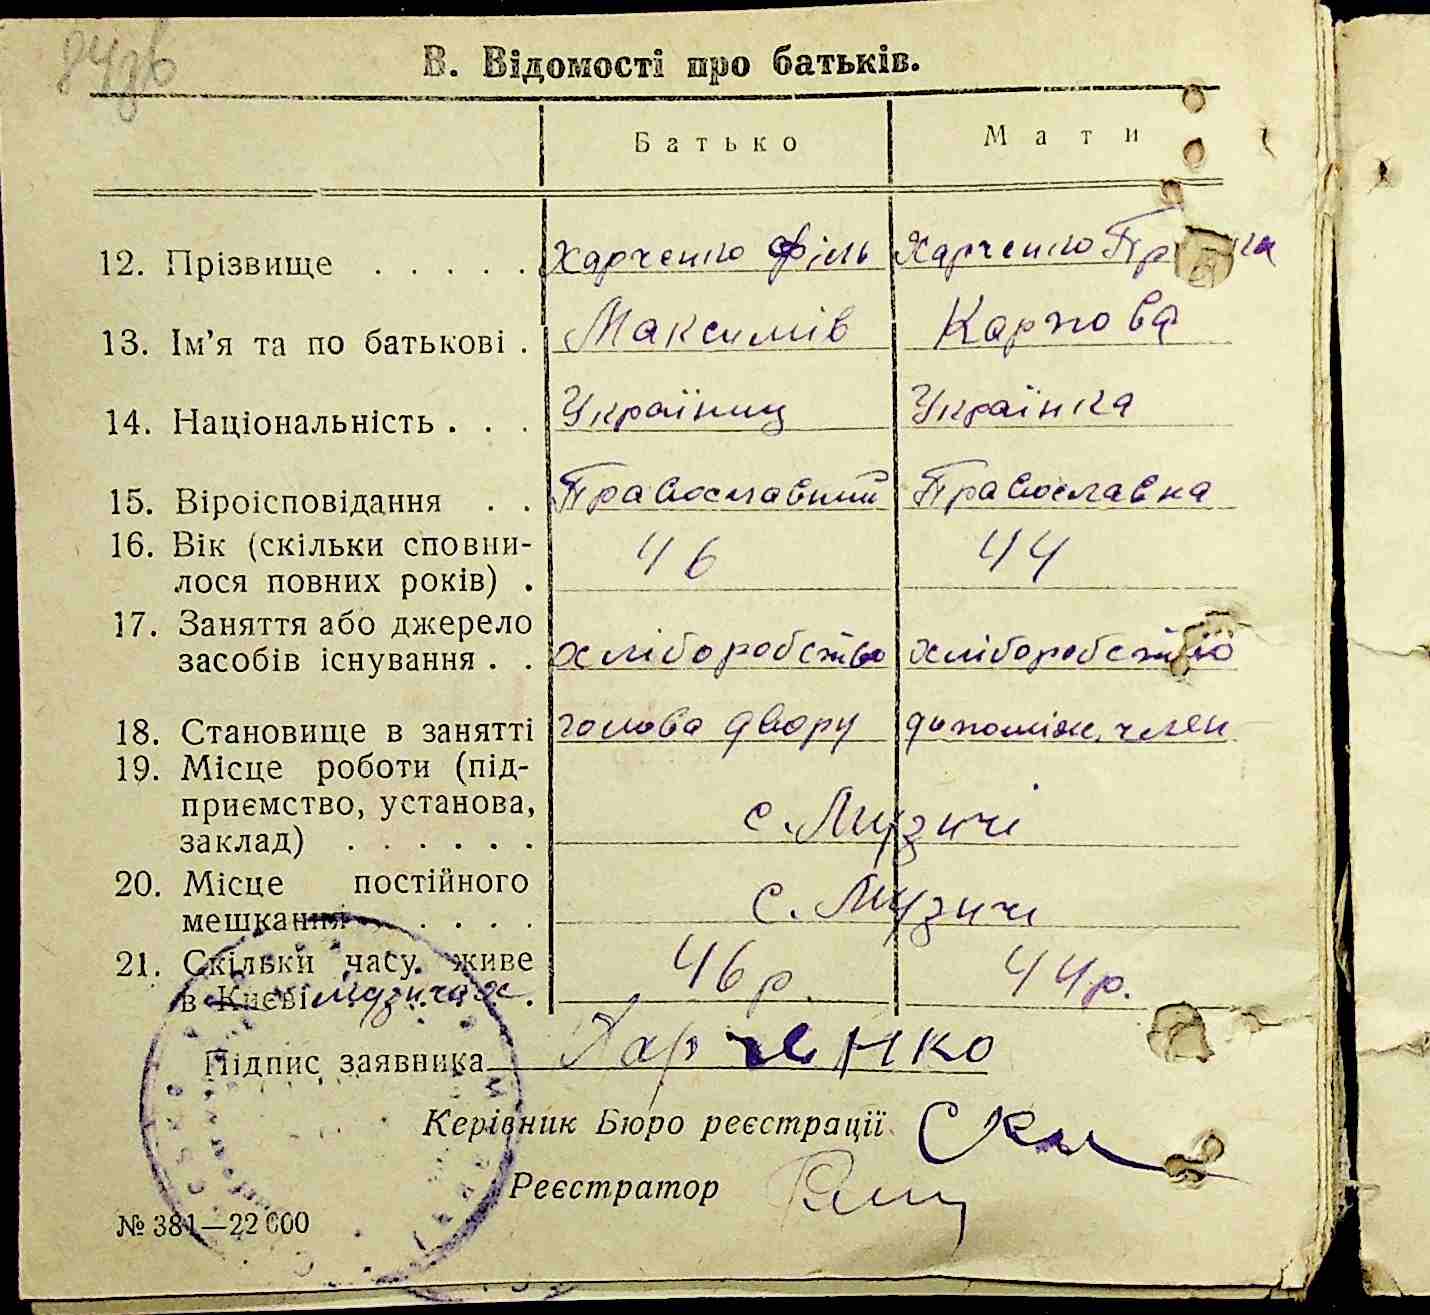 В. Відомості про батьків.
Батько Мати
12. Прізвище . . . . . Харченко Філь Харченко
13. Ім’я та по батькові . Максимів Карпова
14. Національність . . . Українец Українка
15. Віроісповідання . . Православний Православна
16. Вік (скільки сповни-
лося повних років) . 46 44
17. Заняття або джерело
засобів існування . . хліборобство хліборобство
18. Становище в занятті голова двору допоміж. член
19. Місце роботи (під-
приємство, установа,
заклад) . . . . . . с. Музичі
20. Місце постійного
мешкання . . . . . с. Музичі
21. Скільки часу живе
в Києві Музичах . 46 р. 44 р.
Підпис заявника Харченко
Керівник Бюро реєстрації
Реєстратор
№ 381—22 000